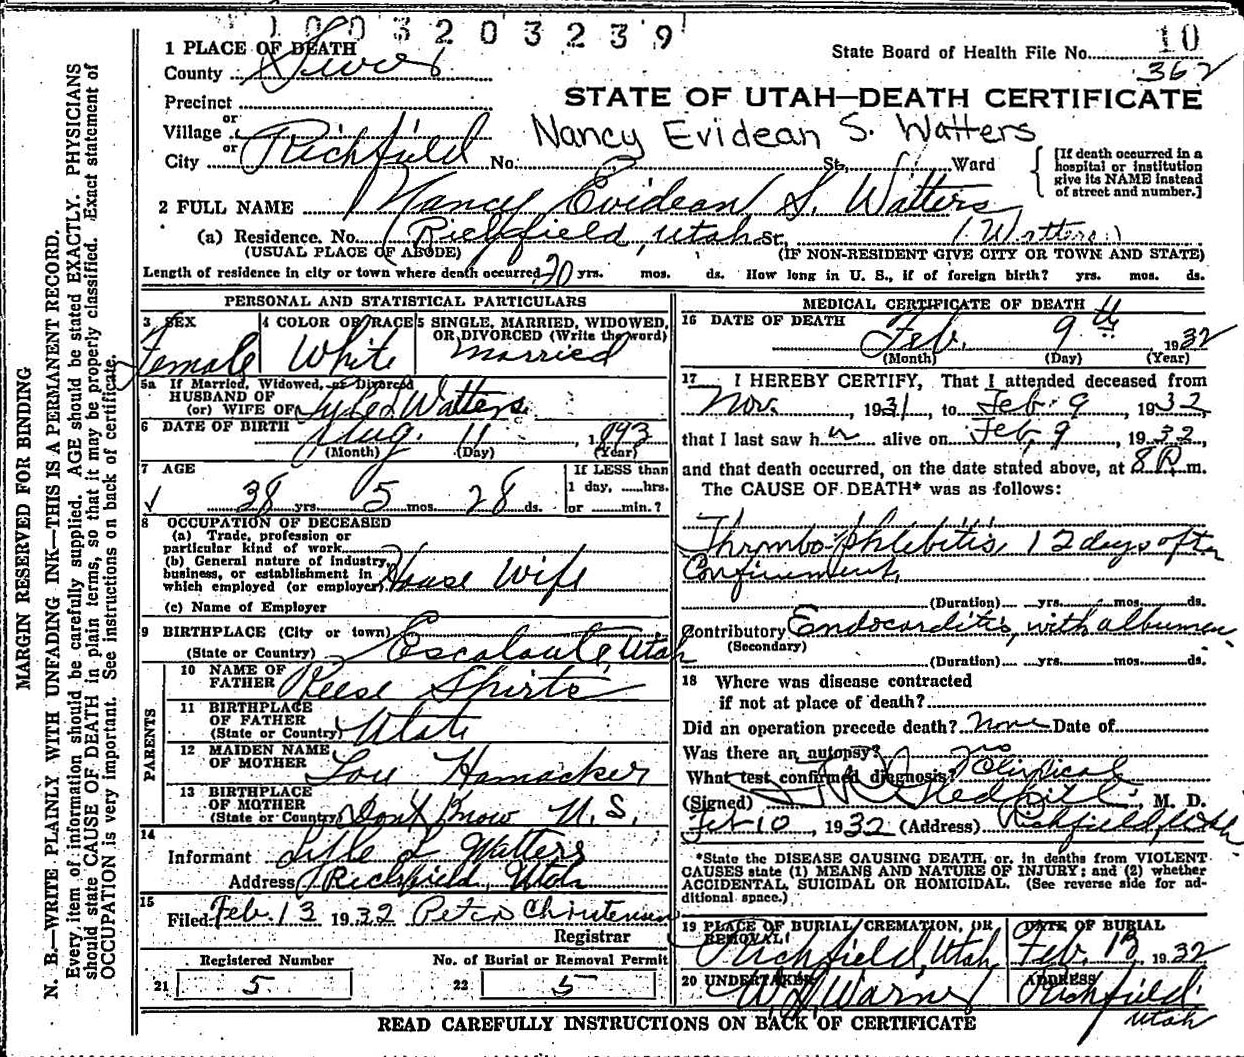 1003203239
10
State Board of Health File No.
362
1 PLACE OF DEATH
County Sevier
STATE OF UTAH—DEATH CERTIFICATE
Precinct
or
Village
or
City Richfield No. St., Ward
Nancy Evidean S. Watters
[If death occurred in a
hospital or institution
give its NAME instead
of street and number.]
2 FULL NAME Nancy Evidean S. Watters
(a) Residence. No. Richfield, Utah St., (Watters)
(USUAL PLACE OF ABODE) (IF NON-RESIDENT GIVE CITY OR TOWN AND STATE)
Length of residence in city or town where death occurred 20 yrs. mos. ds. How long in U. S., if of foreign birth? yrs. mos. ds.
PERSONAL AND STATISTICAL PARTICULARS
3 SEX
Female
4 COLOR OR RACE
White
5 SINGLE, MARRIED, WIDOWED,
OR DIVORCED (Write the word)
Married
5a If Married, Widowed, or Divorced
HUSBAND OF
(or) WIFE OF Watters
6 DATE OF BIRTH Aug. 11, 1893
(Month) (Day) (Year)
7 AGE
38 yrs. 5 mos. 28 ds.
If LESS than
1 day, hrs.
or min.?
8 OCCUPATION OF DECEASED
(a) Trade, profession or
particular kind of work
(b) General nature of industry,
business, or establishment in
which employed (or employer) House Wife
(c) Name of Employer
9 BIRTHPLACE (City or town)
(State or Country) Escalante, Utah
PARENTS
10 NAME OF
FATHER Reese
11 BIRTHPLACE
OF FATHER
(State or Country) Utah
12 MAIDEN NAME
OF MOTHER Lou Hamacker
13 BIRTHPLACE
OF MOTHER
(State or Country) Dont Know U.S.
14
Informant Watters
Address Richfield, Utah
15
Filed Feb. 13 1932 Peter Christensen
Registrar
Registered Number No. of Burial or Removal Permit
21 5 22 5
MEDICAL CERTIFICATE OF DEATH
16 DATE OF DEATH
Feb. 9th 1932
(Month) (Day) (Year)
17 I HEREBY CERTIFY, That I attended deceased from
Nov. , 1931, to Feb. 9, 1932
that I last saw her alive on Feb. 9, 1932,
and that death occurred, on the date stated above, at 8 P m.
The CAUSE OF DEATH* was as follows:
Thrombo Phlebitis, 12 days after
Confinement,
(Duration) yrs. mos. ds.
Contributory Endocarditis, with albumen
(Secondary)
(Duration) yrs. mos. ds.
18 Where was disease contracted
if not at place of death?
Did an operation precede death? None Date of
Was there an autopsy? no
What test confirmed diagnosis? Clinical
(Signed) , M. D.
Feb 10, 1932 (Address) Richfield, Utah
*State the DISEASE CAUSING DEATH, or, in deaths from VIOLENT
CAUSES state (1) MEANS AND NATURE OF INJURY; and (2) whether
ACCIDENTAL, SUICIDAL OR HOMICIDAL. (See reverse side for ad-
ditional space.)
19 PLACE OF BURIAL, CREMATION, OR
REMOVAL
Richfield, Utah
DATE OF BURIAL
Feb. 13, 1932
20 UNDERTAKER
Warner
ADDRESS
Richfield
Utah
READ CAREFULLY INSTRUCTIONS ON BACK OF CERTIFICATE
MARGIN RESERVED FOR BINDING
N. B.—WRITE PLAINLY WITH UNFADING INK—THIS IS A PERMANENT RECORD.
Every item of information should be carefully supplied. AGE should be stated EXACTLY. PHYSICIANS
should state CAUSE OF DEATH in plain terms, so that it may be properly classified. Exact statement of
OCCUPATION is very important. See instructions on back of certificate.